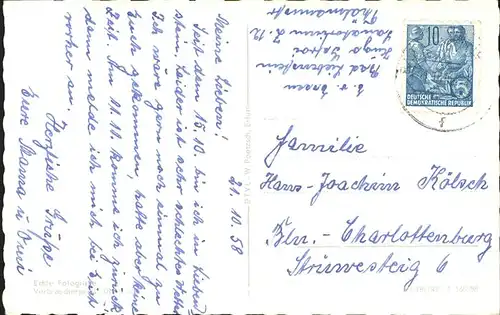 21.10.58
Meine Lieben!
Seit dem 15.10. bin ich in Lieben-
stein. Leider ist sehr schlechtes Wetter
Ich wäre gern noch einmal zu
Euch gekommen, hatte aber keine
Zeit. Am 11.11. komme ich zurück,
dann melde ich mich bei Euch
vorher an.
Herzliche Grüße
Eure Mama u.
Echte Fotografie
Bad Liebenstein
Sanatorium
Thälmannstr
10
DEUTSCHE
DEMOKRATISCHE REPUBLIK
Familie
Hans-Joachim Kölsch
Bln.-Charlottenburg
Strüwesteig 6